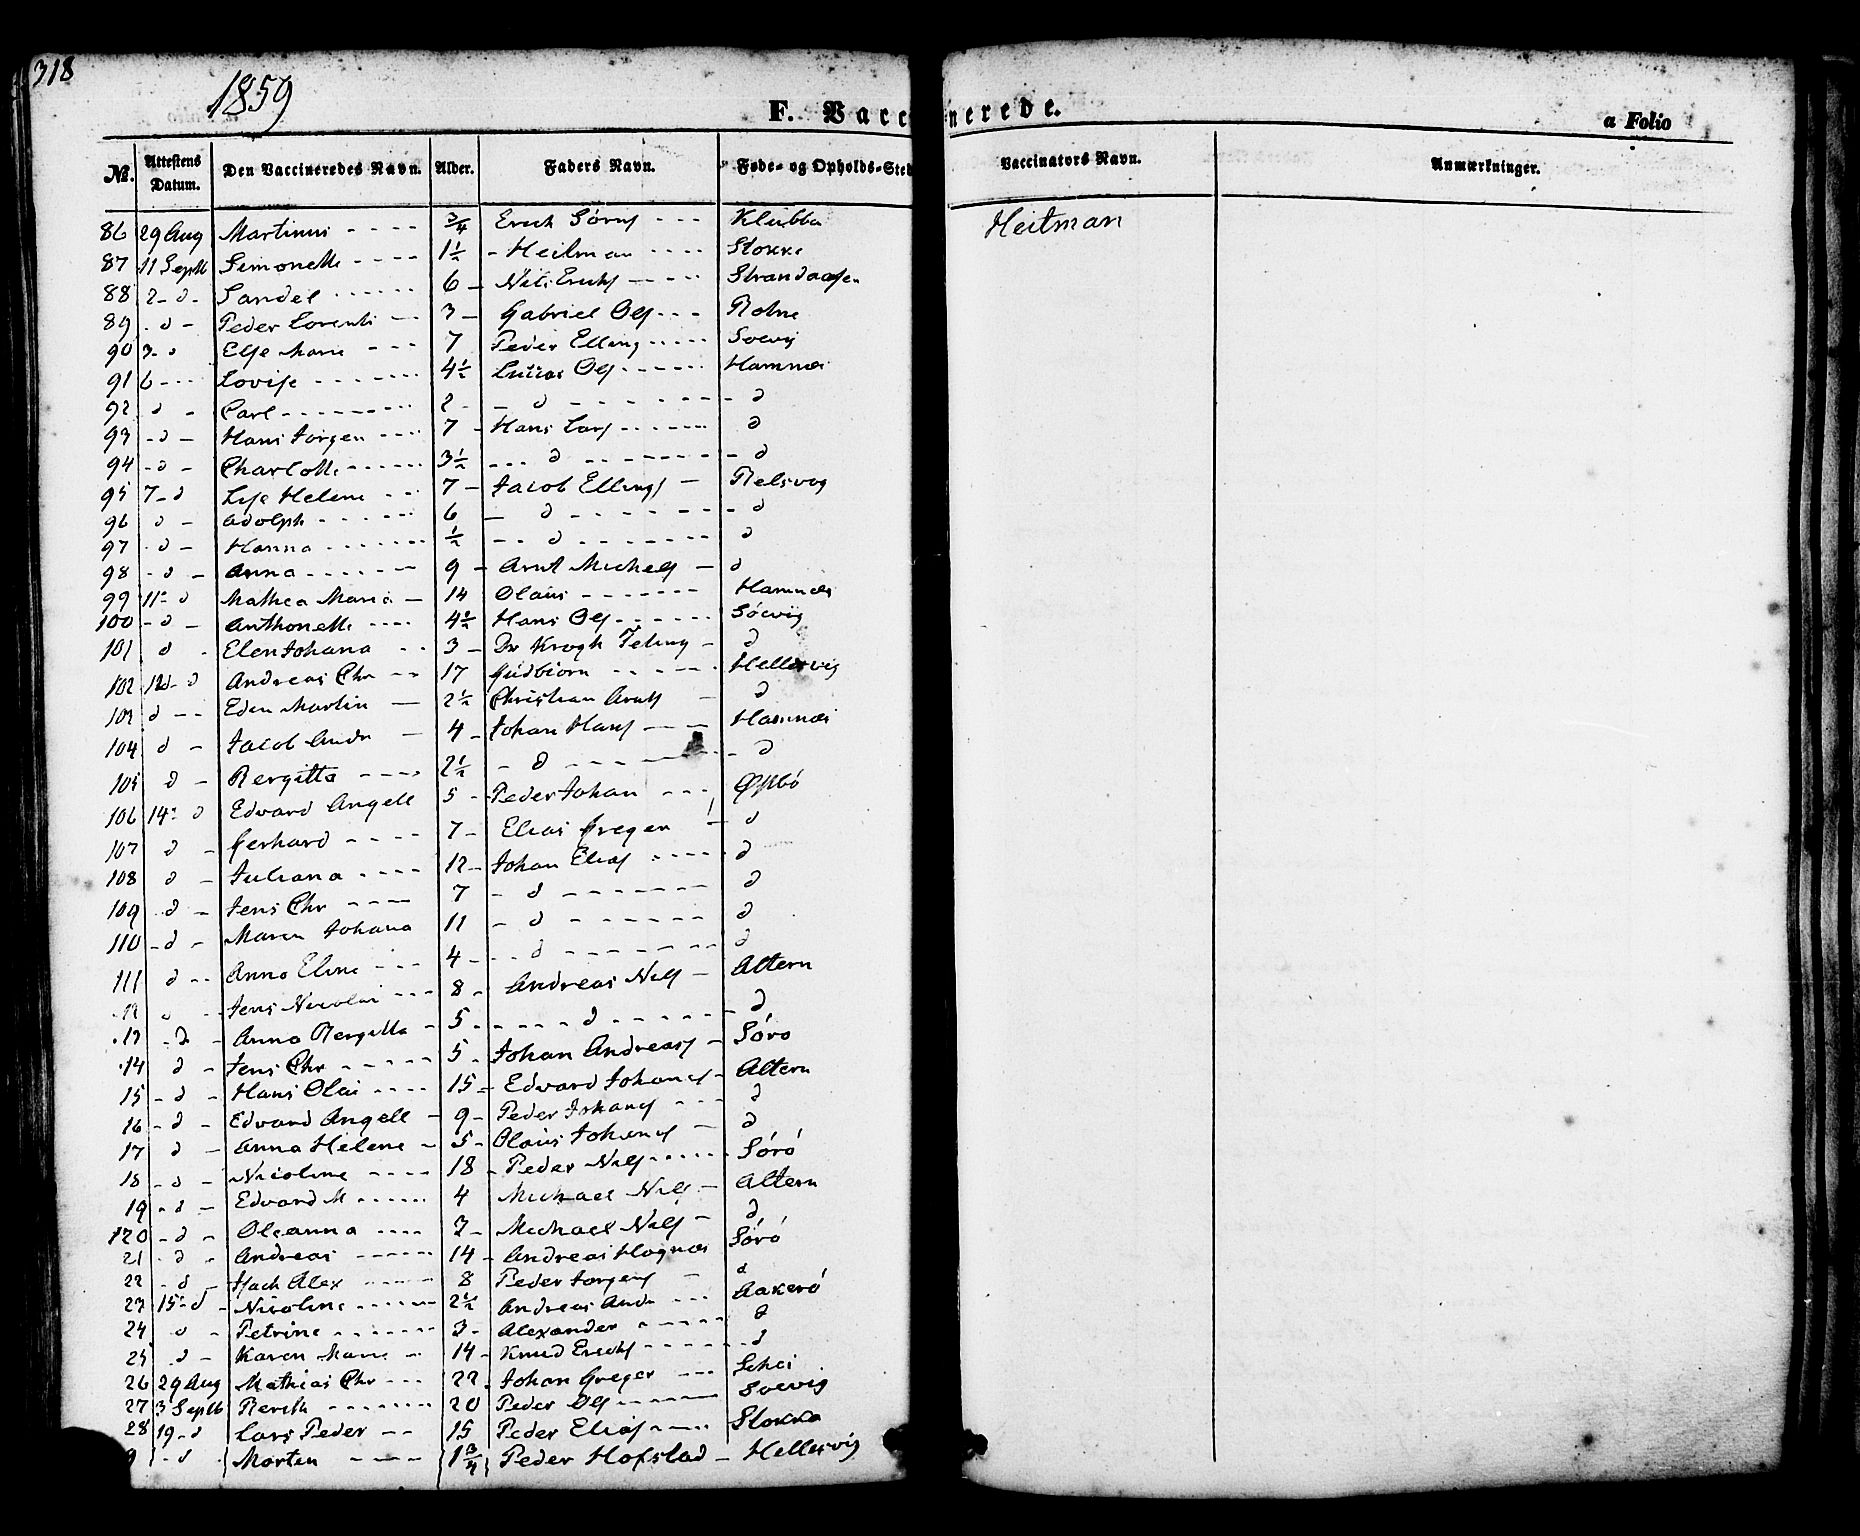 318
1859
F. Vaccinerede.
a Folio
No. Attestens Datum. Den Vaccineredes Navn. Alder. Faders Navn. Føde- og Opholds-Sted Vaccinators Navn. Anmærkninger.
86 29 Aug Martinus - - - - 3/4 Erich Sörens - - - Klubba Heitman
87 11 Septb Simonette - - - - 1 1/2 - Heitman - - - - Stokke
88 2 - d - Sandel - - - - - - 6 - Nils Erichs - - - - Strandaasen
89 - d - Peder Lorents - - 3 - Gabriel Ols - - - Rohne
90 3 - d Else Marie - - - 7 Peder Elling - - - - - Soevig
91 6 - - - Lovise - - - - - - - 4 1/2 Ols - - - - - - Hamnæs
92 d - Carl - - - - - - - - - 2 - - d - - - - - - - - d
93 - d - Hans Jørgen - - - - 7 - Hans Lars - - - - - - d
94 - d - Charlotte - - - - - - 3 1/2 - - - d - - - - - - - - d
95 7 - d Lise Helene - - - 7 - Jacob Ellings - Relsvog
96 d - Adolph - - - - - - 6 - d - - - - - - - - d
97 - d - Hanna - - - - - - - 1/2 - - d - - - - - - - - d
98 - d - Anna - - - - - - - 9 - Arnt Michels - d
99 11 - d Mathea Maria - 14 Olaus - - - - - - - Hamnæs
100 - d - Anthonette - - - - 4 1/2 Hans Ols - - - - - - Söevig
101 d - Elen Johana - - 3 - Dr Krogh - d
102 12 - d Andreas Chr - - 17 Gudbiørn - - - - - - Hellesvig
103 d - - Eden Martin - 2 1/2 Christian Arnts - d
104 d - Jacob Andr - 4 - Johan Hans - - - Hamnæs
105 d - Bergitta - - - - 2 1/2 - d - - - - - - - - d
106 14 - d Edvard Angell 5 - Peder Johan - - - Øxsbö
107 d - Gerhard - - - - 7 - Elias Gregers - d
108 d - Juliana - - - - 12 - Johan Elias - - - - - d
109 d - Jens Chr - - - - 7 - d - - - - - - - d
110 - d - Maren Johana 11 - d - - - - - - - d
111 d - - Anna Eline - - - 4 - - - d - - - - - - - d
12 d - Jens Nicolai - - - 8 - Andreas Nils - Altern
13 - d - Anna Bergitta - 5 - - - - - d - - - - - - - d
14 d - Jens Chr - - - - - 5 - Johan Andreass - Sörö
15 - d - Hans Olai - - - - 15 - Edvard Johans - Altern
16 - d - Edvard Angell - 9 - Peder Johans - - - d
17 d - Anna Helene - 5 - Olaus Johans - d
18 - d - Nicoline - - - - 18 - Peder Nils - - - - - Sörö
19 - d - Edvard M - - - - - - 4 Michael Nils - Altern
120 - d - Oleanna - - - - 3 - Michael Nils - d
21 - d - Andreas - - - - - - 14 - Andreas Hognæs Sörö
22 - d - Alex - - - - - 8 Peder Jørgens - d
23 15 - d - Nicoline - - - - - - - 2 1/2 Andreas Andr - - - Aakerö
24 d - Petrine - - - - - - - 3 - Alexander - - - - - - d
25 - d - Karen Marie - 14 - Knud Erichs - - - - - - - d
26 29 Aug Mathias Chr - - - 22 - Johan Greger - - - Schei
27 3 Septb Berith - - - - - - - - 20 Peder Ols - - - - - Soevig
28 19 - d Lars Peder - - 15 Peder Elias - - - - - Stokka
9 - d Morten - - - - 1 3/4 Peder Hofstad - Hellesvig